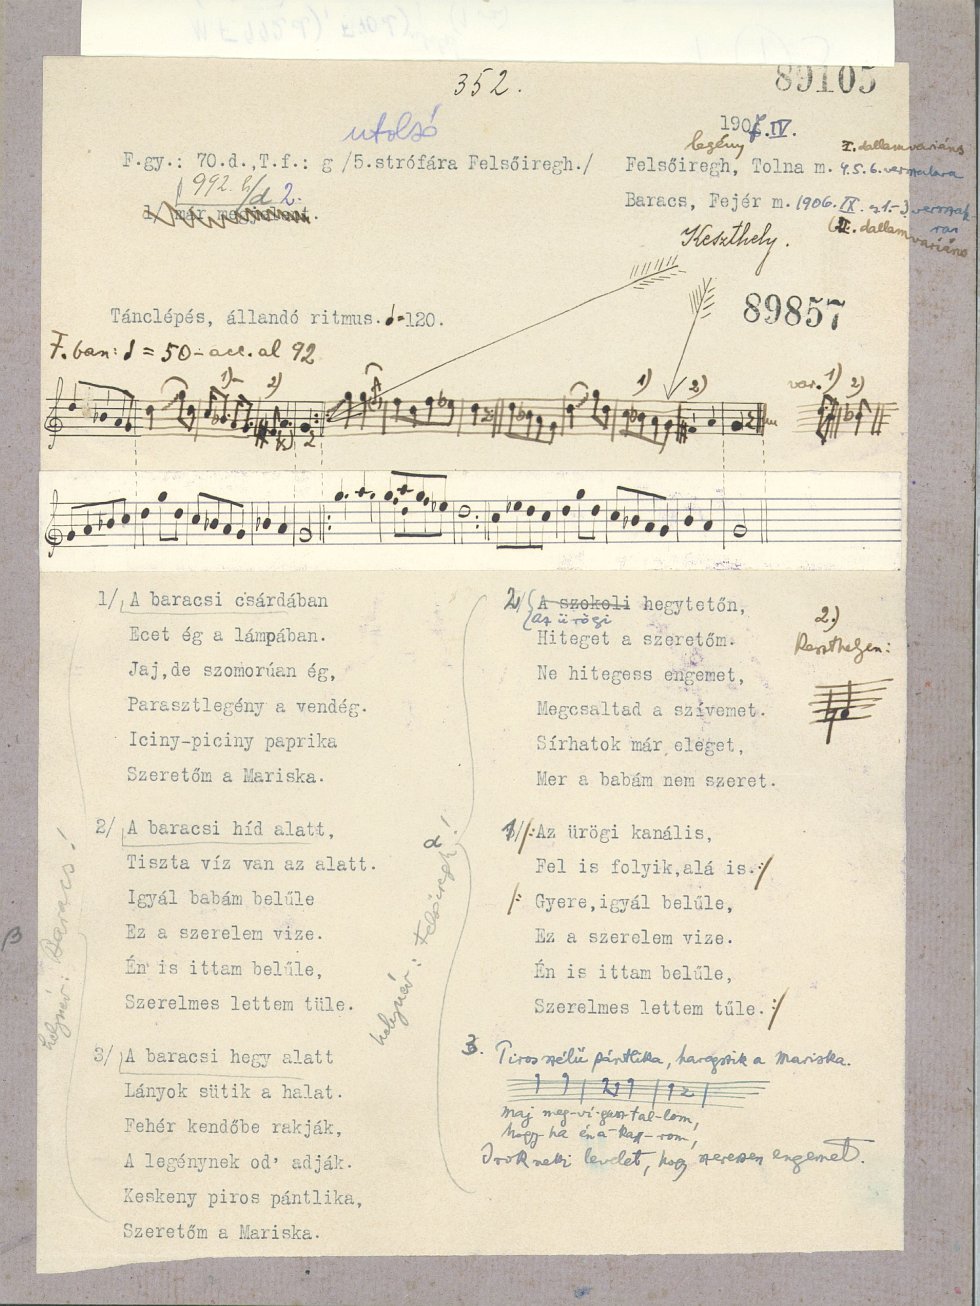 352.
89105
utolsó
1907.IV.
legény
I. dallamvariáns
F.gy.: 70.d.,T.f.: g /5.strófára Felsőiregh./
Felsőiregh, Tolna m. 4.5.6. versszakra
992. d 2.
Baracs, Fejér m. 1906. IX. 1.-3. versszakra
II. dallamvariáns
Keszthely.
89857
Tánclépés, állandó ritmus. ♩=120.
F.ban: ♩ = 50 - acc. al 92
1) 2) 1) 2) var. 1) 2)
1/ A baracsi csárdában
Ecet ég a lámpában.
Jaj,de szomorúan ég,
Parasztlegény a vendég.
Iciny-piciny paprika
Szeretőm a Mariska.
2/ A baracsi híd alatt,
Tiszta víz van az alatt.
Igyál babám belűle
Ez a szerelem vize.
Én is ittam belűle,
Szerelmes lettem tüle.
3/ A baracsi hegy alatt
Lányok sütik a halat.
Fehér kendőbe rakják,
A legénynek od' adják.
Keskeny piros pántlika,
Szeretőm a Mariska.
β
helynév: Baracs!
α
helynév: Felsőiregh!
2/ A szokoli hegytetőn,
az ürögi
Hiteget a szeretőm.
Ne hitegess engemet,
Megcsaltad a szívemet.
Sírhatok már eleget,
Mer a babám nem szeret.
2.)
Keszthelyen:
1/ /:Az ürögi kanális,
Fel is folyik,alá is.:/
/: Gyere,igyál belűle,
Ez a szerelem vize.
Én is ittam belűle,
Szerelmes lettem tűle.:/
3. Piros szélű pántlika, haragszik a Mariska.
maj meg-vi-gasztal-lom,
hogy-ha én a-kar-rom,
Irok neki levelet, hogy szeressen engemet.